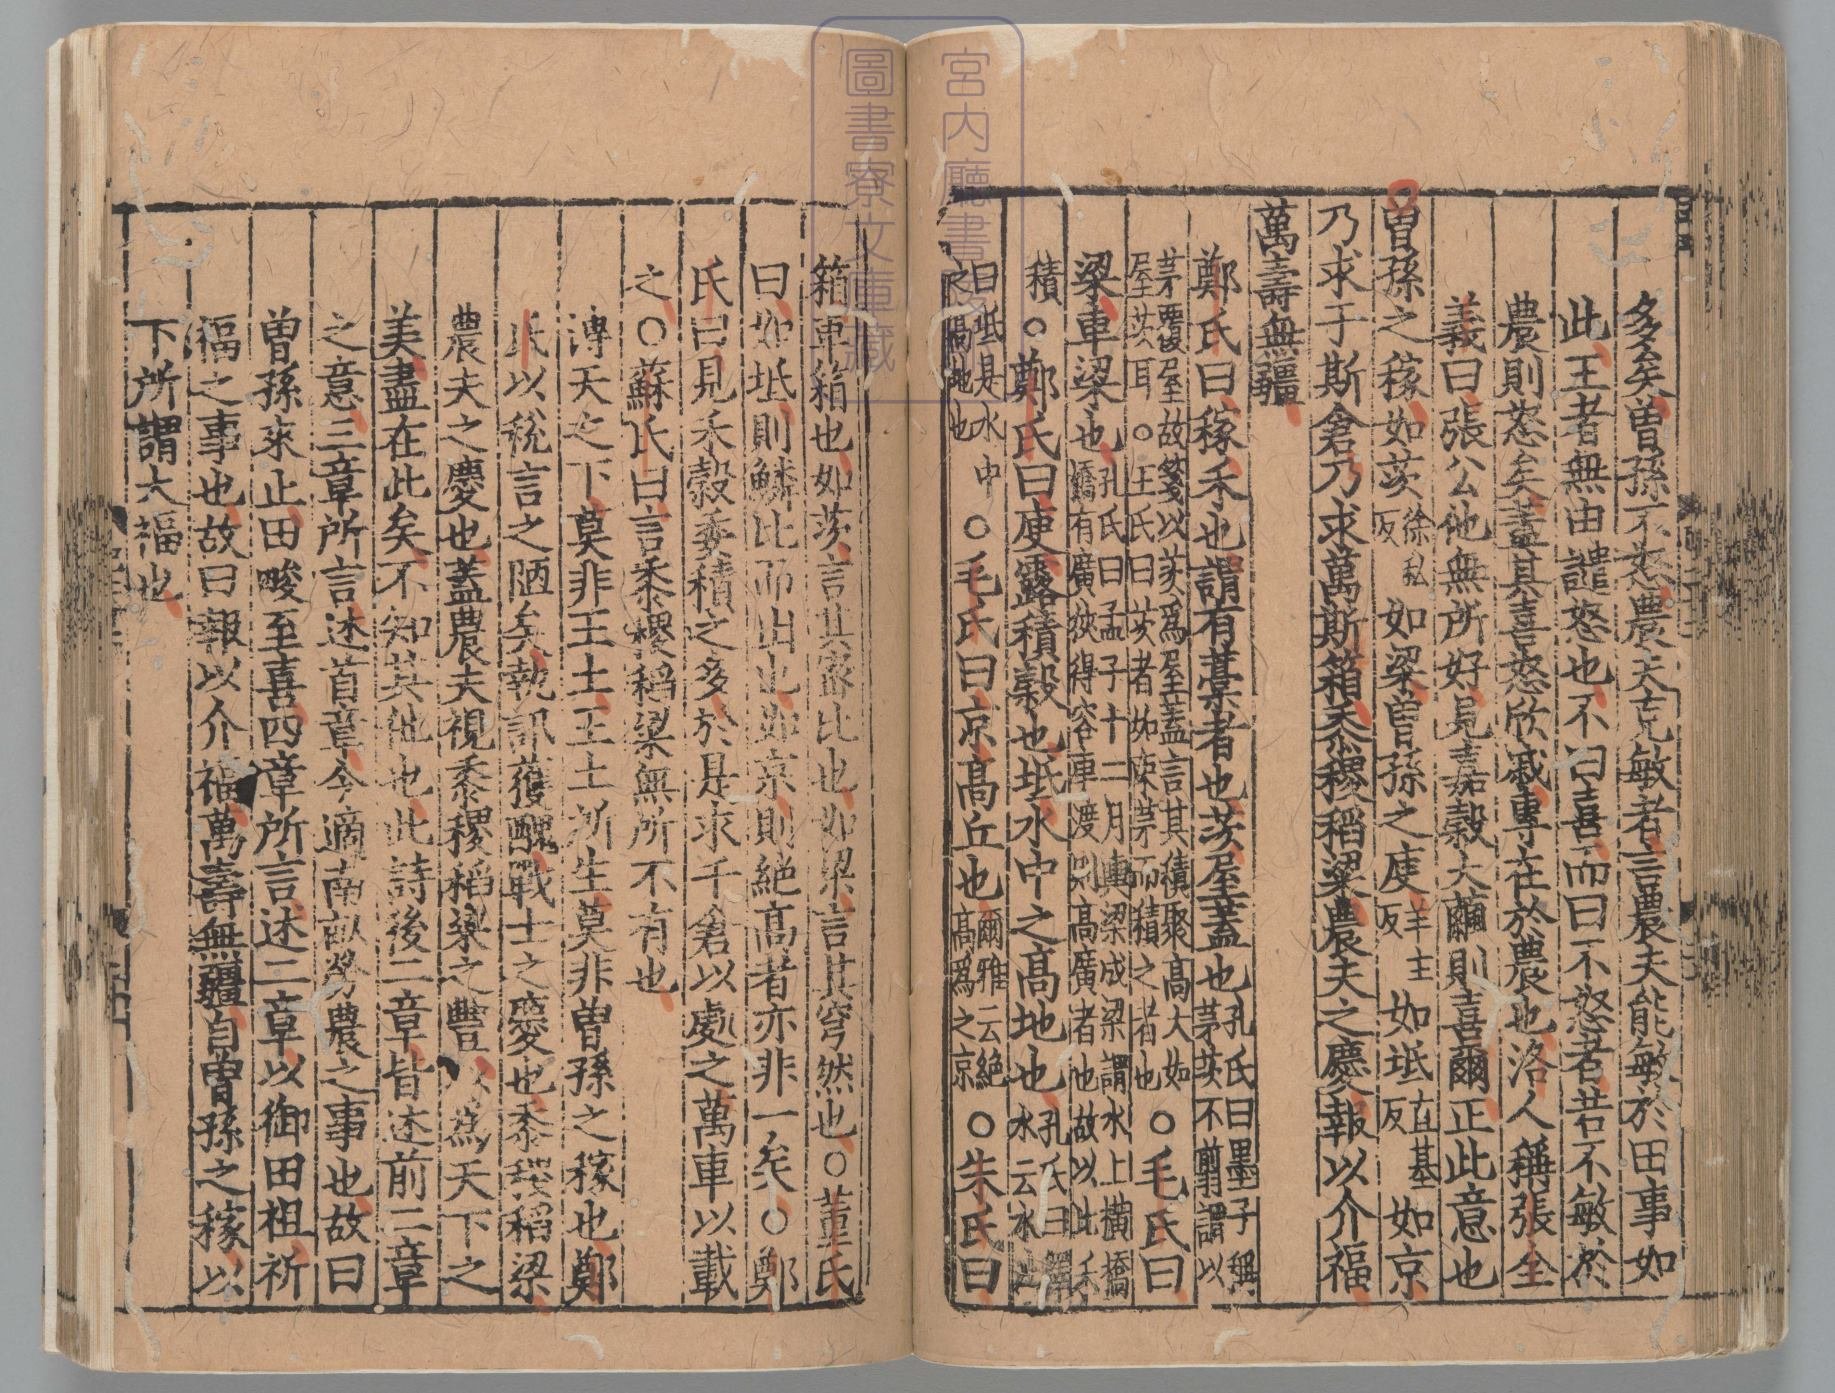 多矣曽孫不怒農夫克敏者言農夫能敏於田事如
此王者無由譴怒也不曰喜而曰不怒者若不敏於
農則怒矣蓋其喜怒欣戚專在於農也洛人稱張全
義曰張公他無所好見嘉穀大繭則喜爾正此意也
曽孫之稼如茨徐私反如梁曽孫之庾羊主反如坻直基反如京
乃求千斯倉乃求萬斯箱黍稷稻粱農夫之慶報以介福
萬壽無疆
鄭氏曰稼禾也謂有藁者也茨屋蓋也孔氏曰墨子稱茅茨不翦謂以
茅覆屋故箋以茨爲屋蓋言其積聚高大如屋茨耳○王氏曰茨者如束茅而積之者也○毛氏曰
梁車梁也孔氏曰孟子十二月輿梁成梁謂水上橫橋橋有廣狹得容車渡則高廣者也故以比禾
積○鄭氏曰庾露積穀也坻水中之高地也孔氏曰釋水云水中
曰坻是水中之高地也○毛氏曰京高丘也爾雅云絶高爲之京○朱氏曰
箱車箱也如茨言其密比也如梁言其穹然也○董氏
曰如坻則鱗比而出也如京則絶高者亦非一矣○鄭
氏曰見禾穀委積之多於是求千倉以處之萬車以載
之○蘇氏曰言黍稷稻粱無所不有也
溥天之下莫非王土王土所生莫非曽孫之稼也鄭
氏以稅言之陋矣執訊獲醜戰士之慶也黍稷稻粱
農夫之慶也蓋農夫視黍稷稻粱之豐以爲天下之
美盡在此矣不知其他也此詩後二章皆述前二章
之意三章所言述首章今適南畝勞農之事也故曰
曽孫來止田畯至喜四章所言述二章以御田祖祈
福之事也故曰報以介福萬壽無疆自曽孫之稼以
下所謂大福也
宮內廳書陵部
圖書寮文庫藏